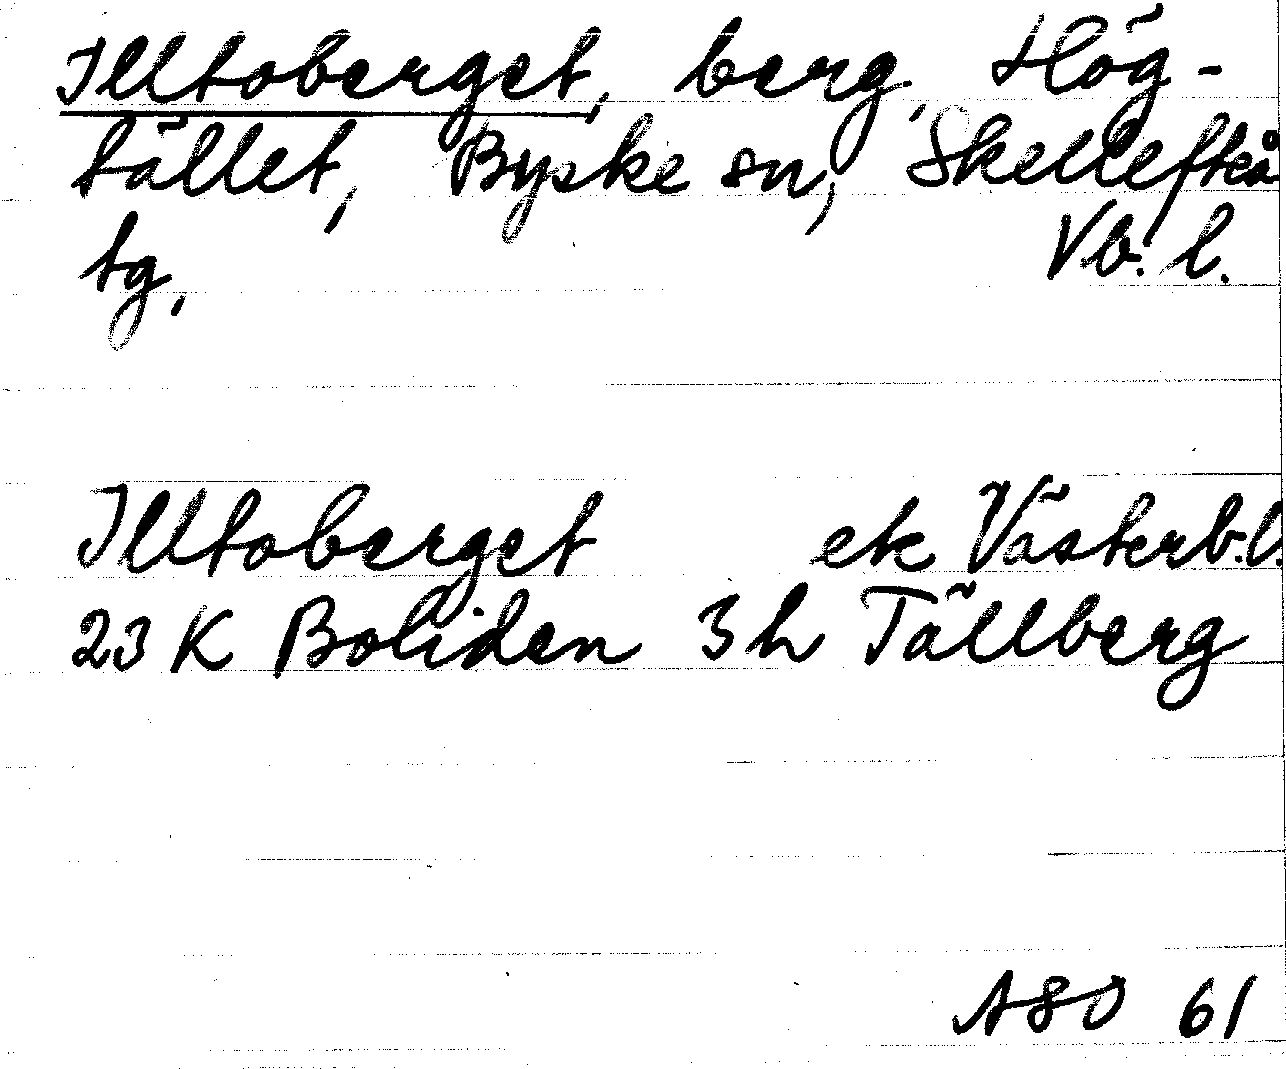 Illtoberget, berg, Hög-
tället, Byske sn, Skellefteå
tg, Vb. l.
Illtoberget ek Västerb. l.
23 K Boliden 3 h Tällberg
ASO 61